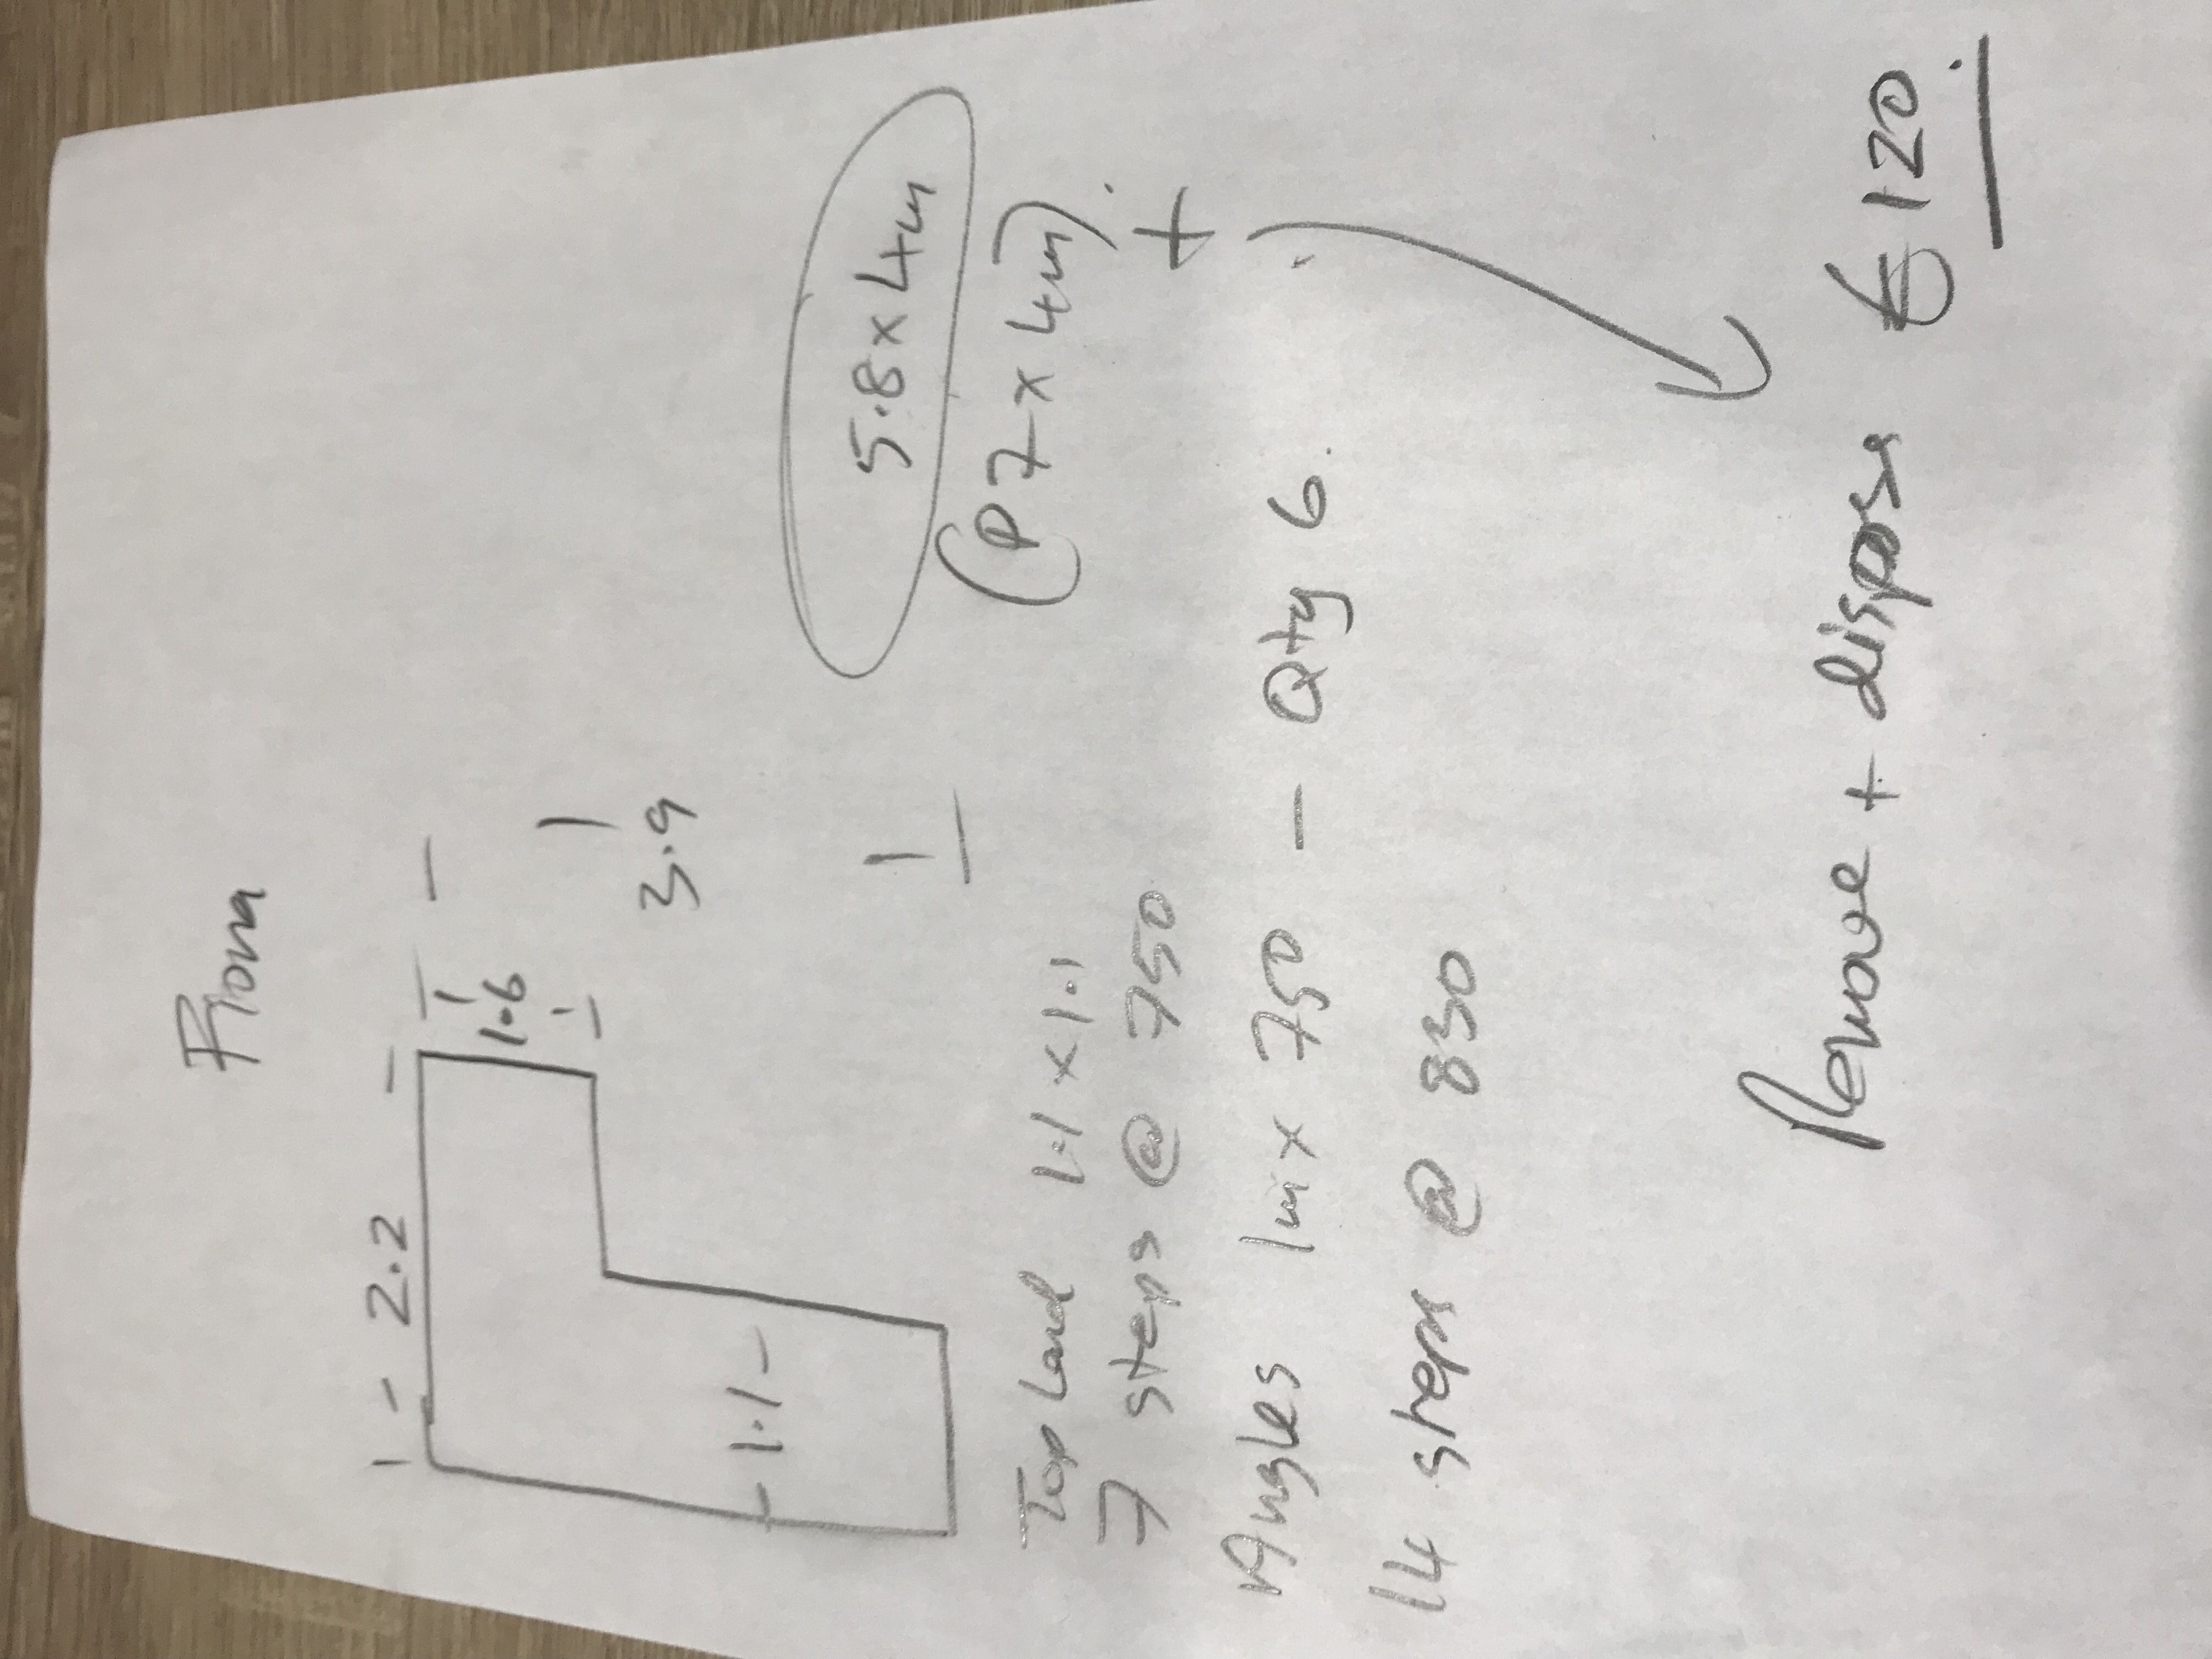 2.2
1.6
3.9
1.1
5.8 x 4m
(P7 x 4m).
+
Top Land 1.1 x 1.1
7 steps @ 750
Angles 1m x 750 - Qty 6.
14 steps @ 830
Remove + dispose € 120.